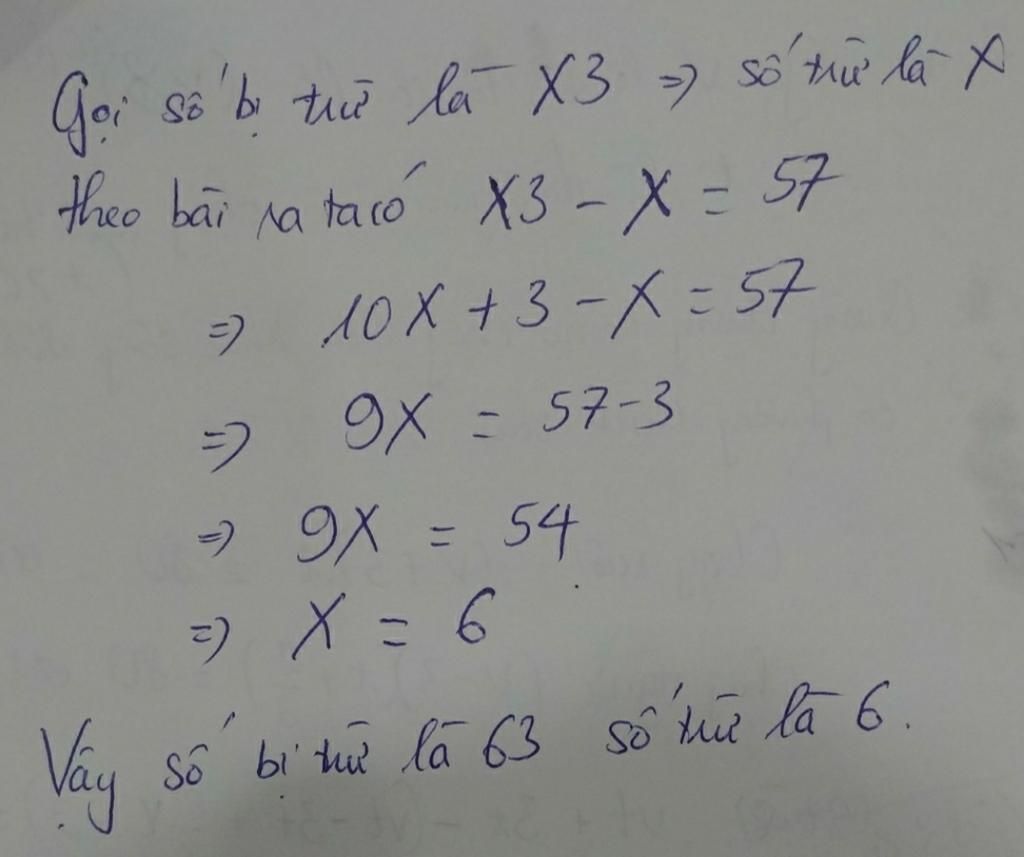 Gọi số bị trừ là X3 => số trừ là X
theo bài ra ta có X3 - X = 57
=> 10X + 3 - X = 57
=> 9X = 57 - 3
=> 9X = 54
=> X = 6
Vậy số bị trừ là 63 số trừ là 6.